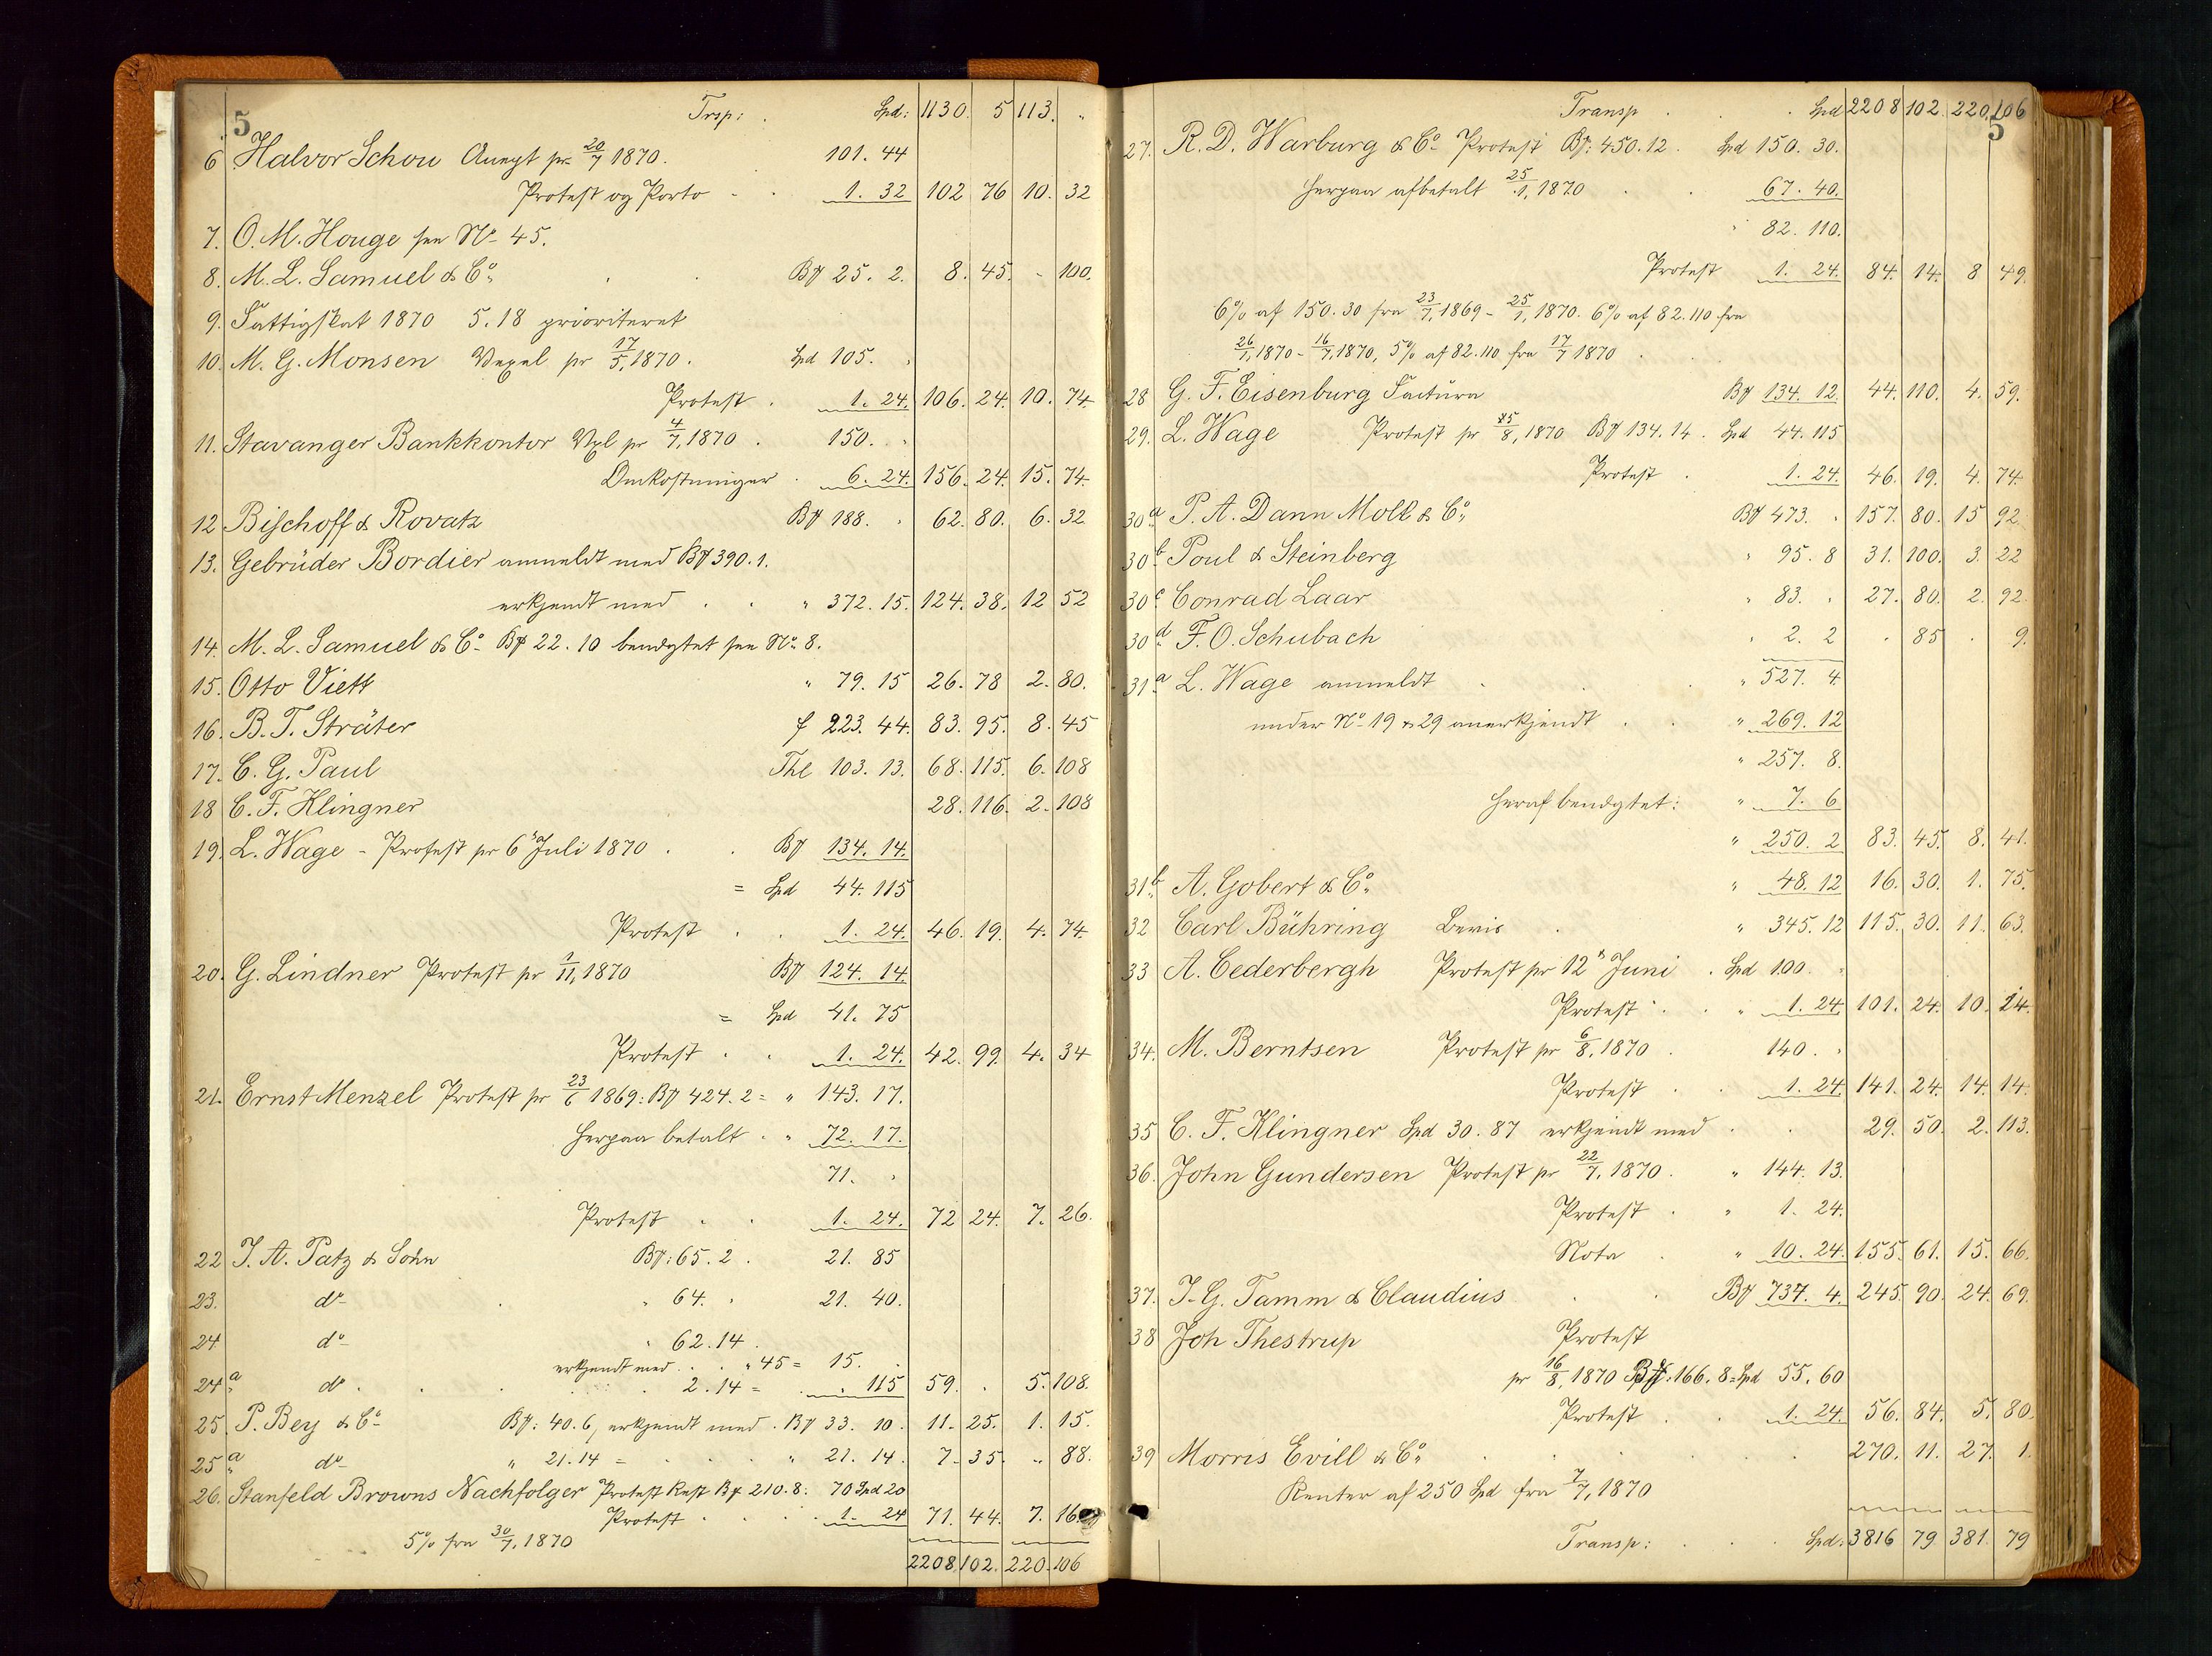 5
Trsp: . Spd: 1130. 5 113. "
6 Halvor Schou Aksept pr. 20/7 1870. 101. 44
Protest og Porto . . 1. 32 102 76 10. 32
7. O. M. Houge sen No 45.
8. M. L. Samuel & Co . . Bf 25. 2. 8. 45. - 100.
9. Fattigskat 1870 5.18 prioriteret
10. M. G. Monsen Vexel pr 17/5, 1870. Spd 105. "
Protest . 1. 24. 106. 24. 10. 74.
11. Stavanger Bankkontor Vxl pr 4/7, 1870 . 150. "
Omkostninger . 6. 24. 156. 24. 15. 74.
12 Bischoff & Rovatz Bf 188. " 62. 80. 6. 32
13. Gebrüder Bordier anmeldt med Bf 390. 1.
erkjendt med . . " 372. 15. 124. 38. 12 52
14. M. L. Samuel & Co Bf 22. 10 benegtet sen No 8.
15. Otto Viett " 79. 15 26. 78 2. 80.
16. B. T. Sträter f 223. 44. 83. 95. 8. 45
17. C. G. Paul Thl 103. 13. 68. 115. 6. 108
18 C. F. Klingner 28. 116. 2. 108
19. L. Wage - Protest pr 6" Juli 1870 . . Bf 134. 14.
= Spd 44. 115
Protest . . 1. 24. 46. 19. 4. 74.
20. G. Lindner Protest pr 1/11, 1870 Bf 124. 14.
= Spd 41. 75
Protest . . 1. 24. 42. 99. 4. 34
21. Ernst Menzel Protest pr 23/6 1869: Bf 424. 2 = " 143. 17.
herpaa betalt . " 72. 17.
71. "
Protest . . 1. 24. 72 24. 7. 26.
22 J. A. Patz & Sohn Bf: 65. 2 . 21. 85
23. do . " 64. " 21. 40.
24 do " 62. 14 .
erkjendt med . . " 45 = 15. .
24a do . . . 2. 14 = . " 115 59. . 5. 108.
25. P. Bey & Co Bf: 40. 6, erkjendt med . Bf 33. 10. 11. 25. 1. 15.
25a do " 21. 14 = . . . " 21. 14. 7. 35. " 88.
26. Stanfeld Browns Nachfolger Protest Rest Bf 210. 8. 70 Spd 20
Protest . . . 1. 24 71. 44. 7. 16.
5% fra 30/7, 1870
2208. 102. 220. 106
5
Transp . . . Spd 2208 102. 220. 106
27. R. D. Warburg & Co Protest Bf: 450. 12. Spd 150. 30.
herpaa afbetalt 25/1, 1870 . . 67. 40.
" 82. 110.
Protest 1. 24. 84. 14. 8 49.
6% af 150. 30 fra 23/7, 1869 - 25/1, 1870. 6% af 82. 110 fra
26/1, 1870 - 16/7, 1870, 5% af 82. 110 fra 17/7 1870 .
28 G. F. Eisenburg Factura Bf 134. 12. 44. 110. 4. 59.
29. L. Wage Protest pr 25/8, 1870 Bf 134. 14. Spd 44. 115
Protest . 1. 24. 46. 19. 4. 74.
30a P. A. Dann Moll & Co Bf 473. " 157. 80. 15 92.
30b Poul & Steinberg " 95. 8 31. 100. 3. 22
30c Conrad Laar " 83. " 27. 80. 2. 92.
30d F. O. Schubach " 2. 2 " 85 . 9.
31a L. Wage anmeldt . . . " 527. 4.
under No 19 & 29 anerkjendt . . " 269. 12
" 257. 8.
heraf benegtet: " 7. 6
" 250. 2 83. 45. 8. 41.
31b A. Gobert & Co " 48. 12 16. 30. 1. 75.
32 Carl Bühring Bevis . " 345. 12 115. 30. 11. 63.
33 A. Cederbergh Protest pr 12" Juni . Spd 100. "
Protest . . " 1. 24. 101. 24. 10. 14.
34. M. Berntsen Protest pr 6/8, 1870 . 140. "
Protest . . 1. 24. 141. 24. 14. 14.
35 C. F. Klingner Spd 30. 87 erkjendt med . . 29. 50. 2. 113.
36. John Gundersen Protest pr 22/7, 1870. " 144. 13.
Protest . " 1. 24.
Nota . " 10. 24. 155. 61. 15. 66.
37. J. G. Tamm & Claudius . . Bf 737. 4. 245. 90. 24. 69.
38 Joh Thestrup Protest
pr 16/8, 1870 Bf. 166. 8 = Spd 55. 60
Protest . . 1. 24. 56. 84. 5. 80.
39 Morris Evill & Co . . . . . 270. 11. 27. 1.
Renter af 250 Spd fra 7/7, 1870
Transp: . . . Spd: 3816 79. 381. 79